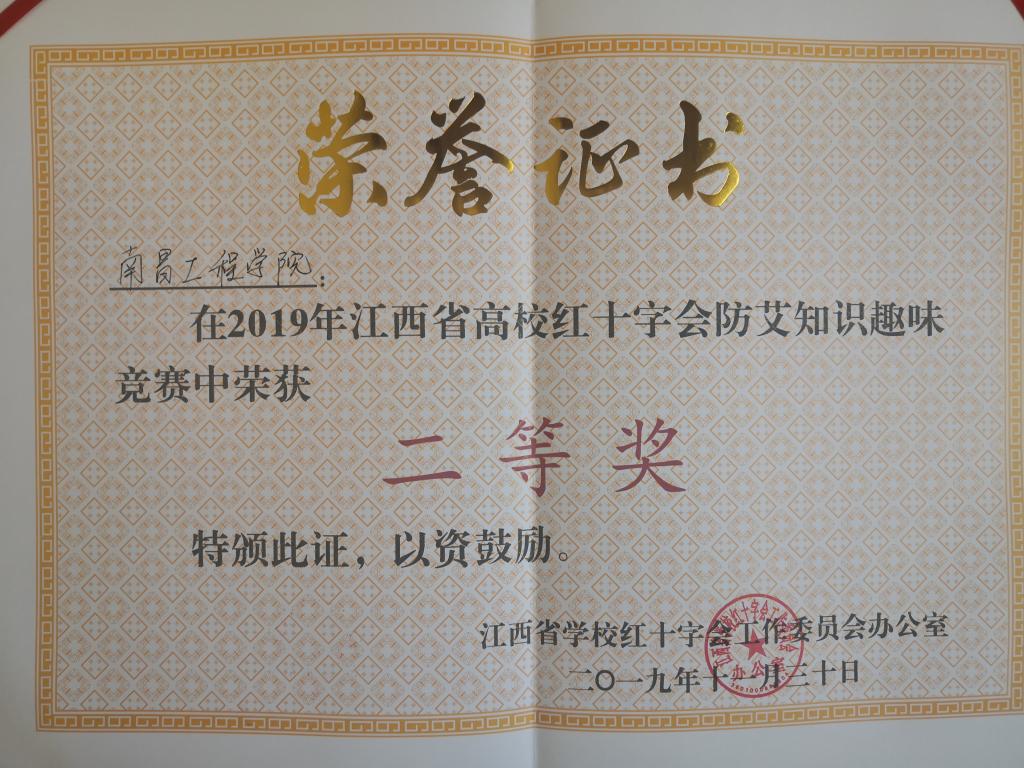 荣誉证书
南昌工程学院：
在2019年江西省高校红十字会防艾知识趣味
竞赛中荣获
二等奖
特颁此证，以资鼓励。
江西省学校红十字会工作委员会办公室
二〇一九年十一月三十日
办公室